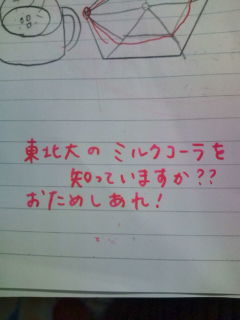 東北大のミルクコーラを
知っていますか??
おためしあれ!